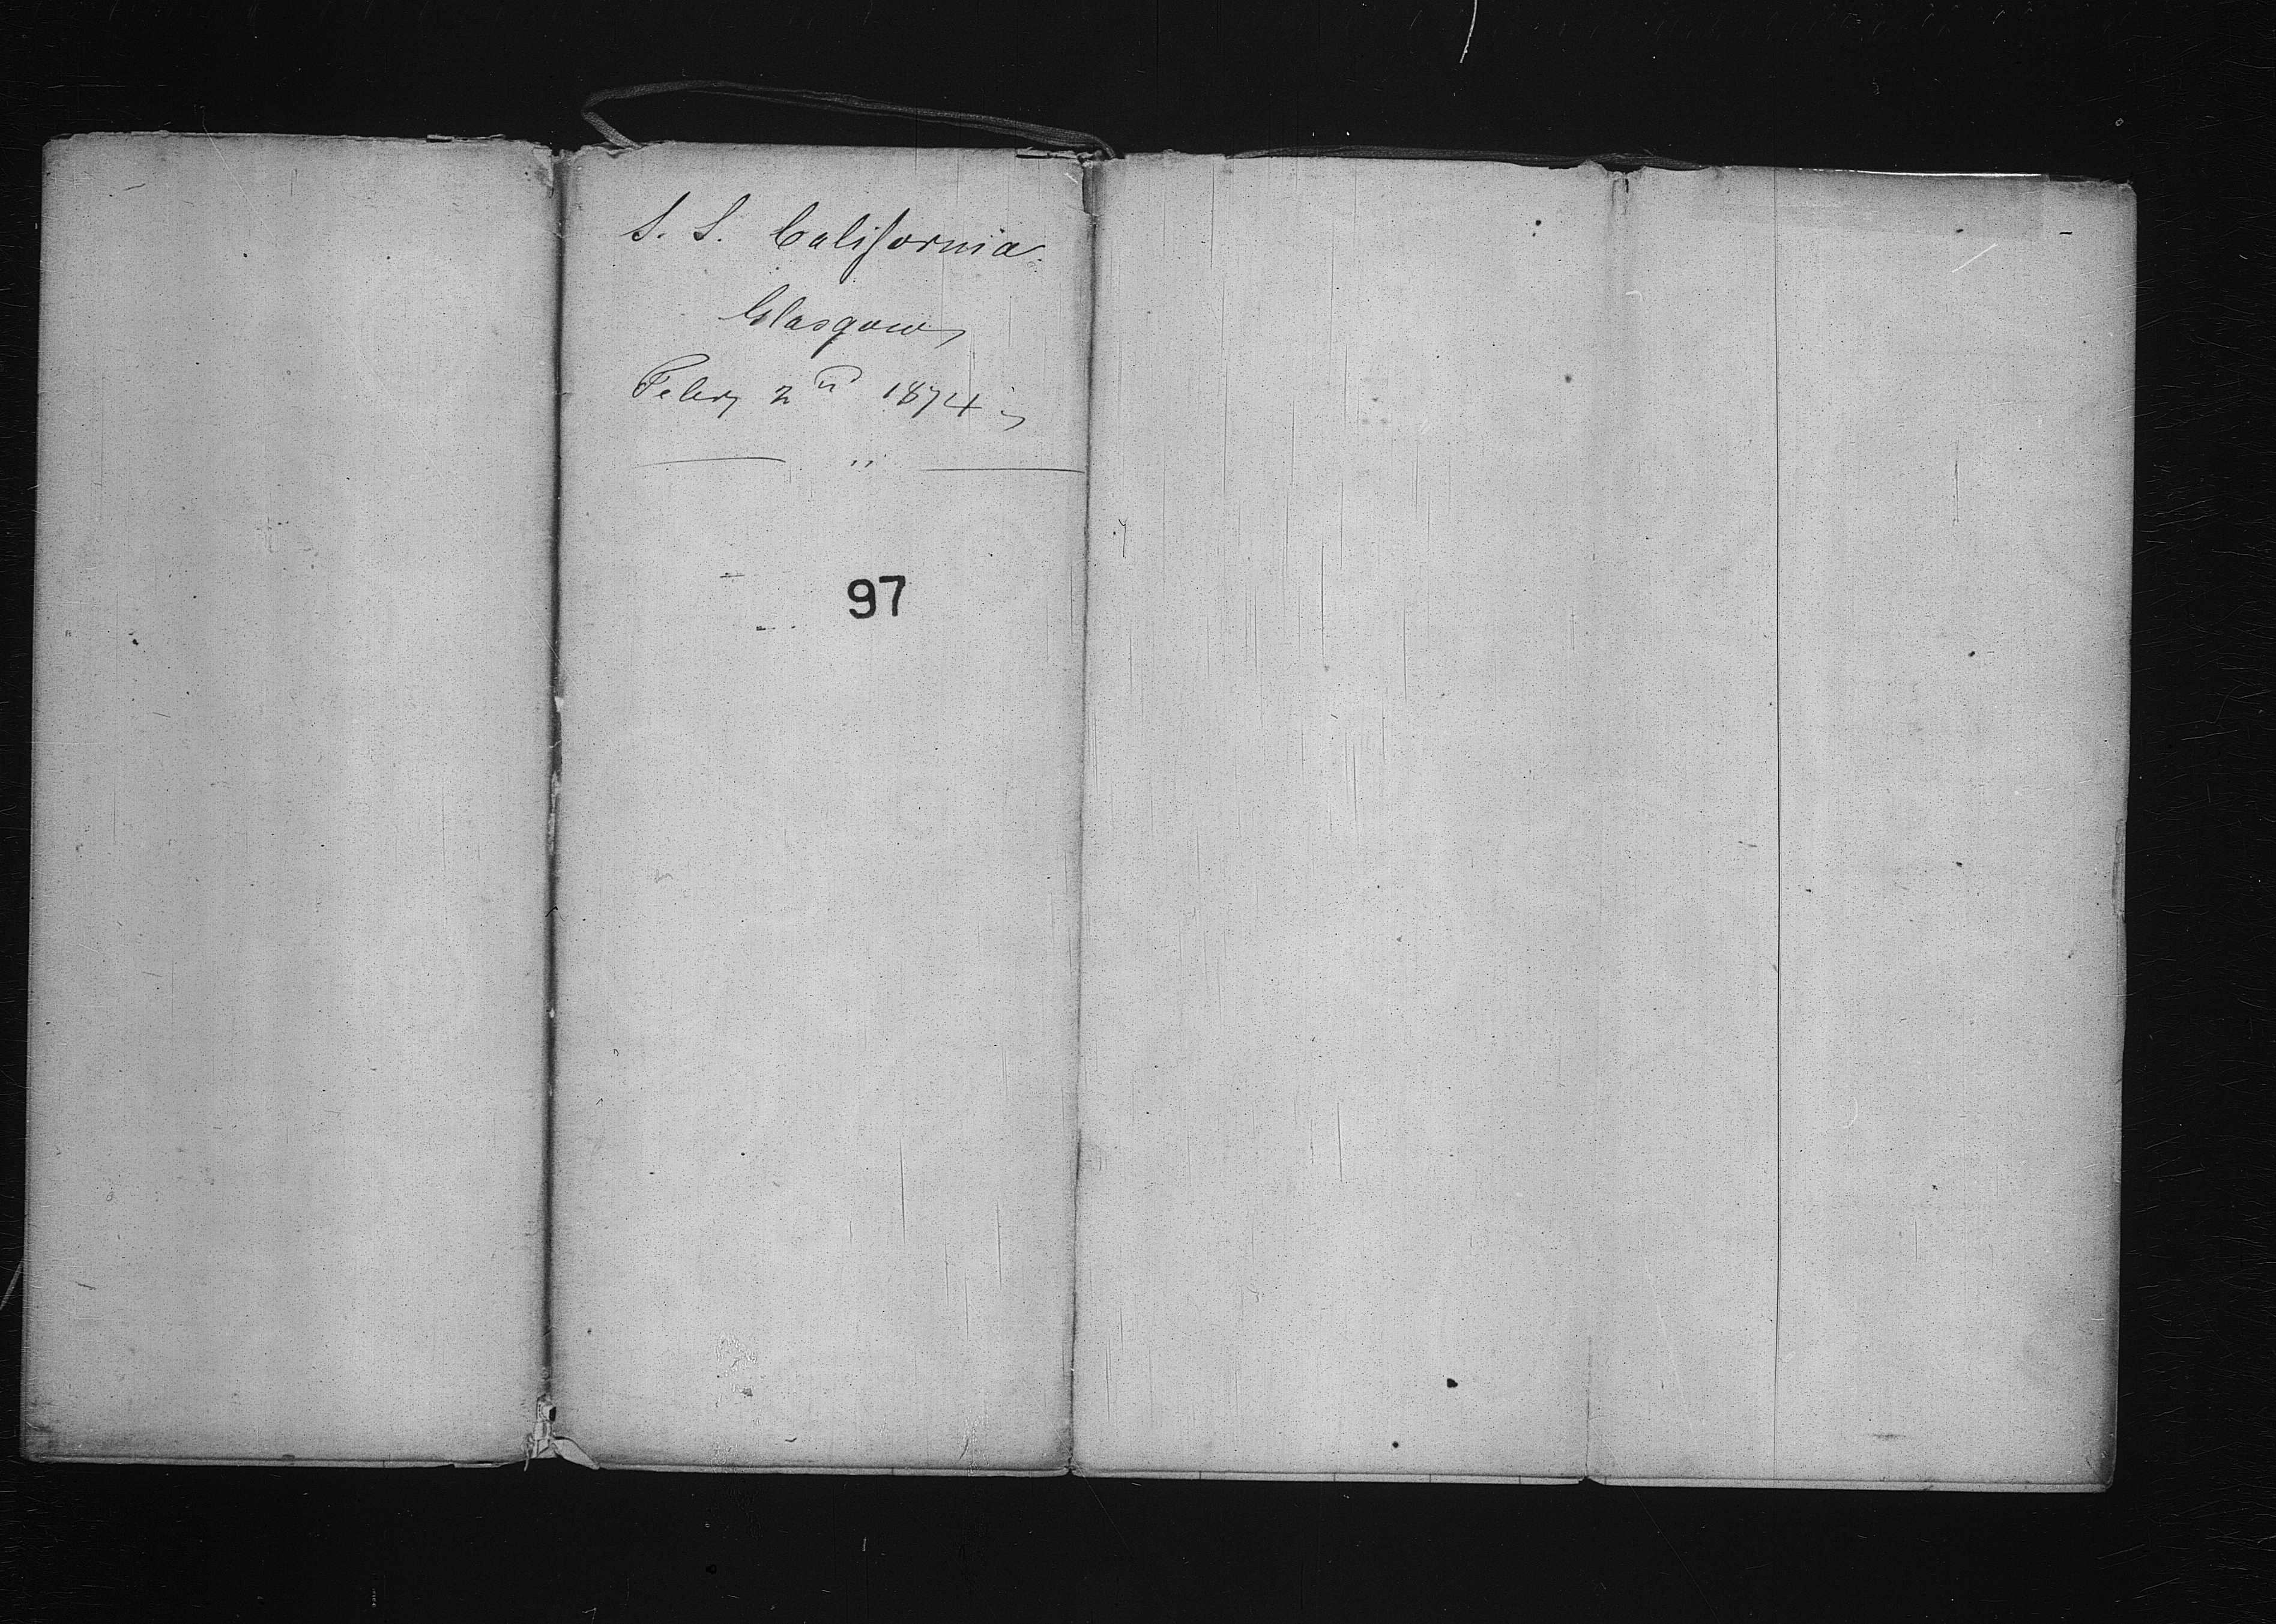 S. S. California.
Glasgow
Feby 2nd 1874
97